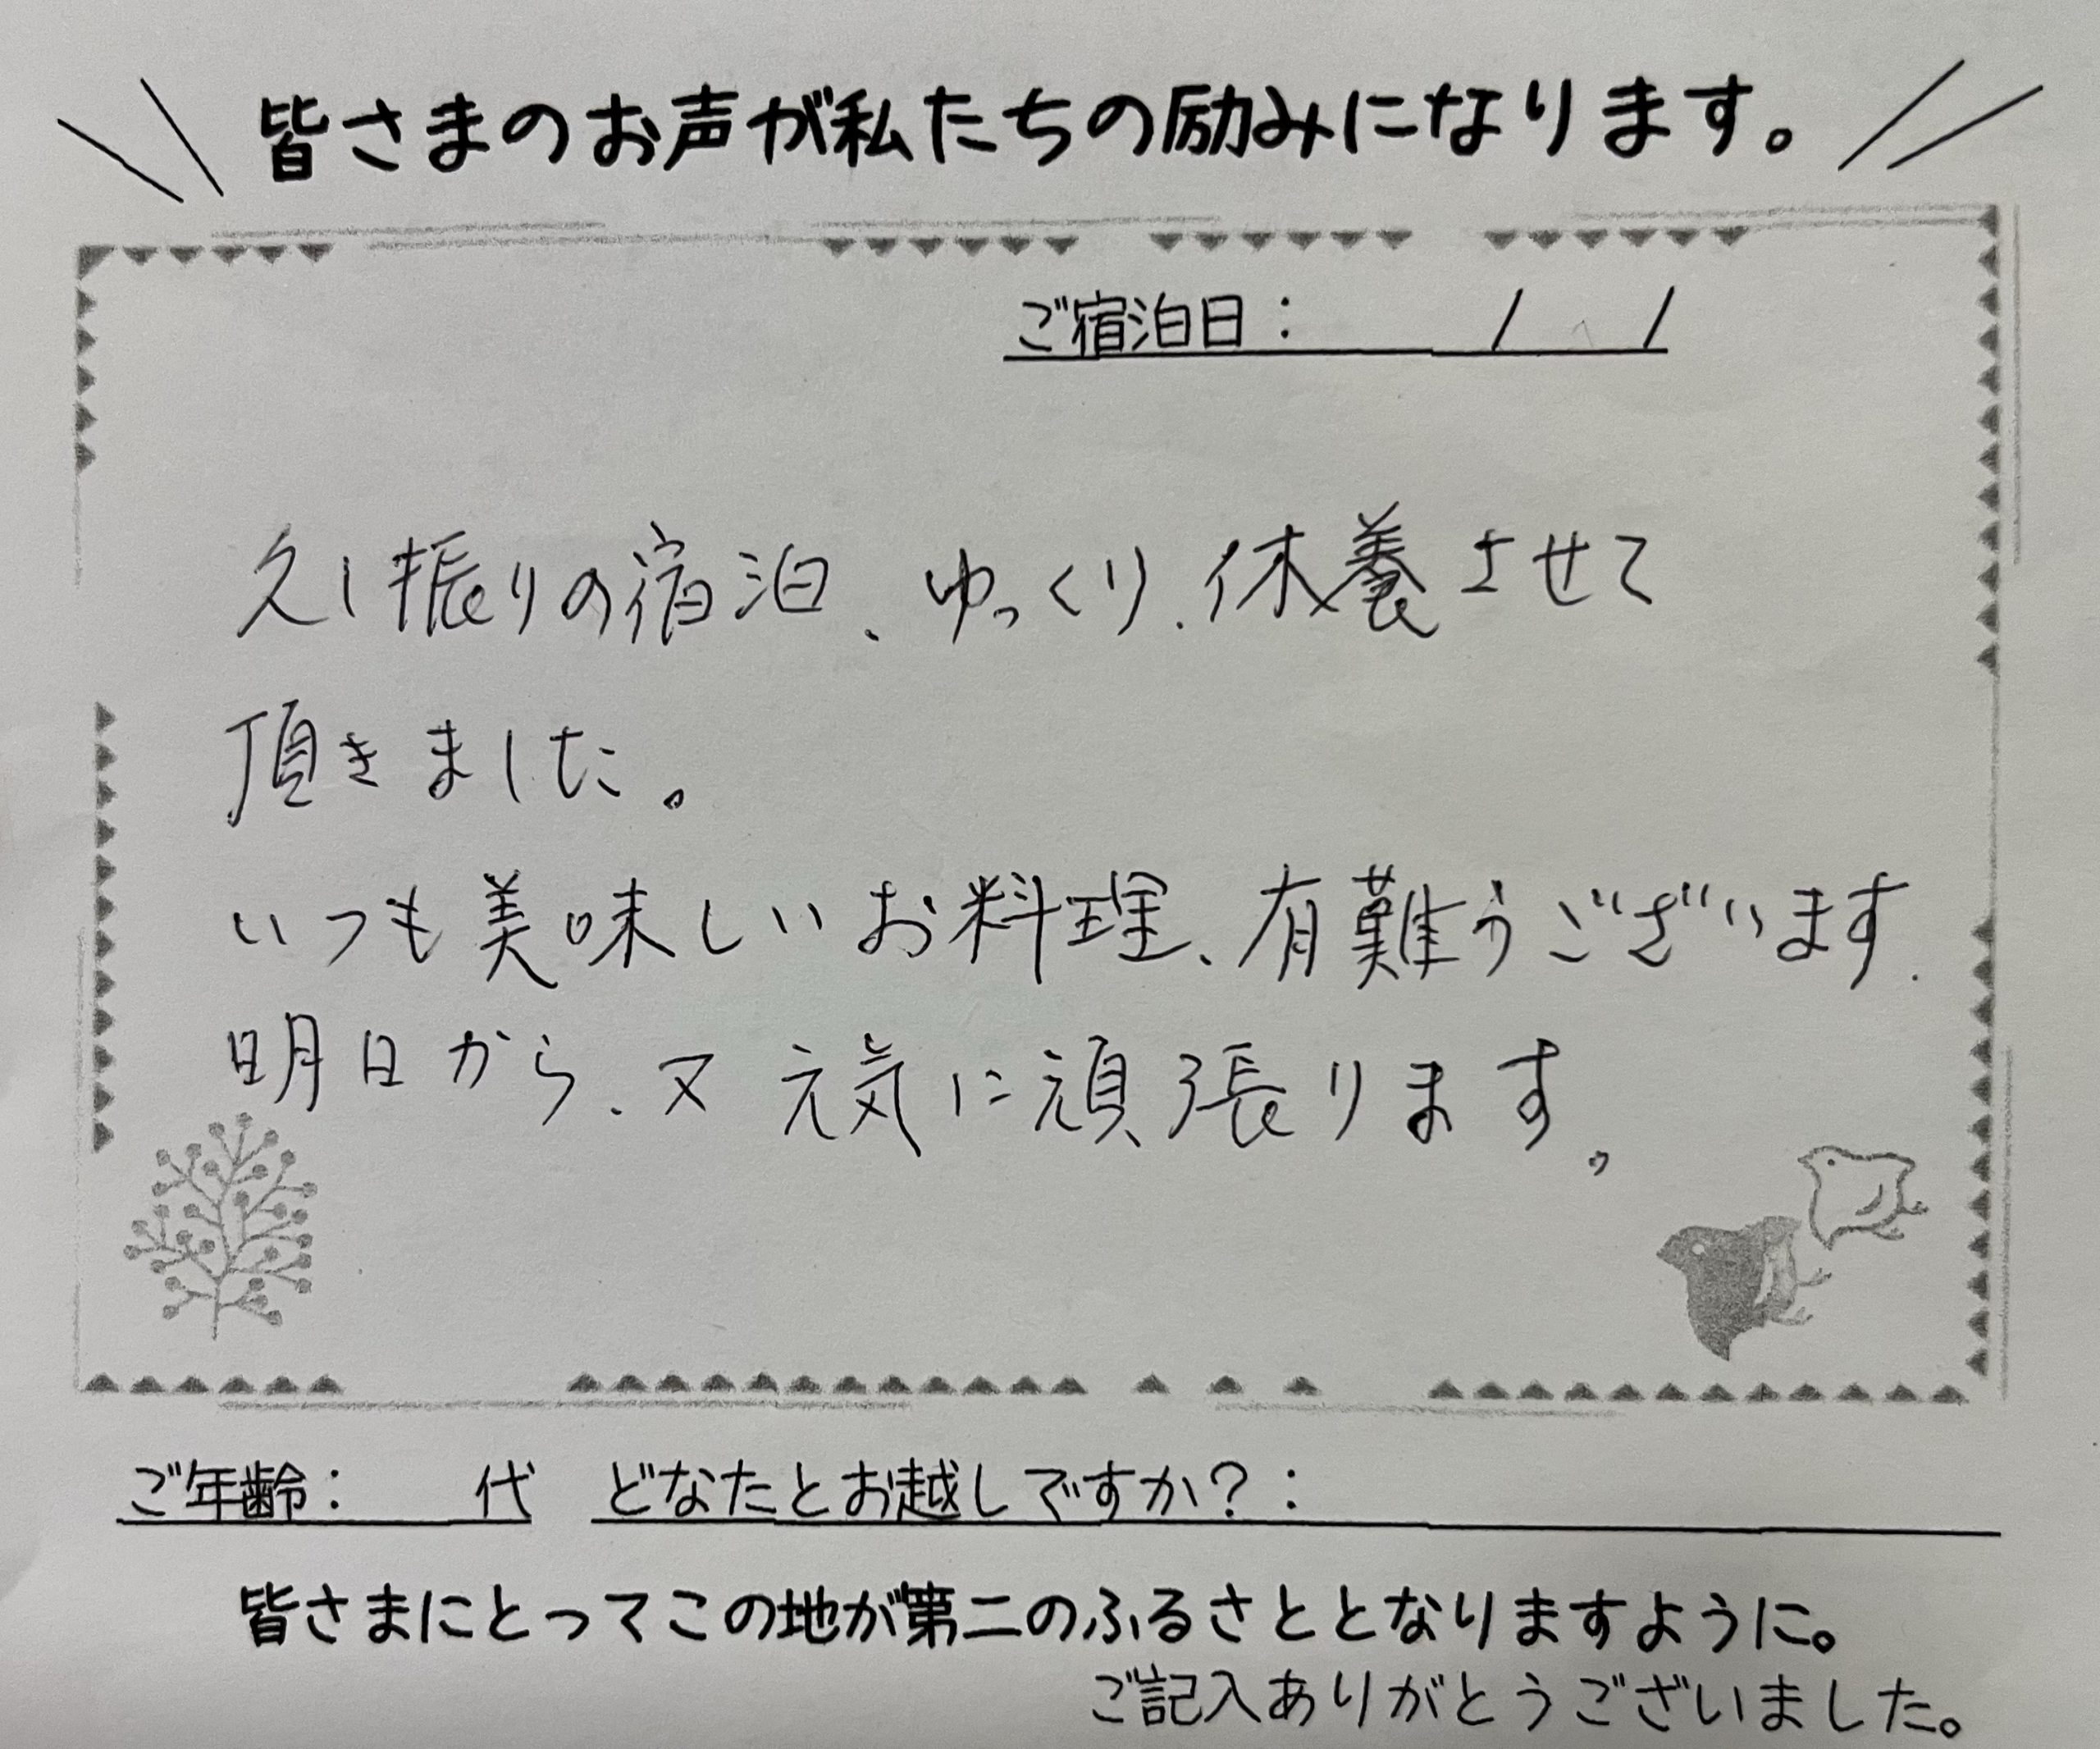 皆さまのお声が私たちの励みになります。
ご宿泊日： / /
久し振りの宿泊、ゆっくり、休養させて
頂きました。
いつも美味しいお料理、有難うございます。
明日から、又 元気に頑張ります。
ご年齢： 代 どなたとお越しですか？：
皆さまにとってこの地が第二のふるさととなりますように。
ご記入ありがとうございました。